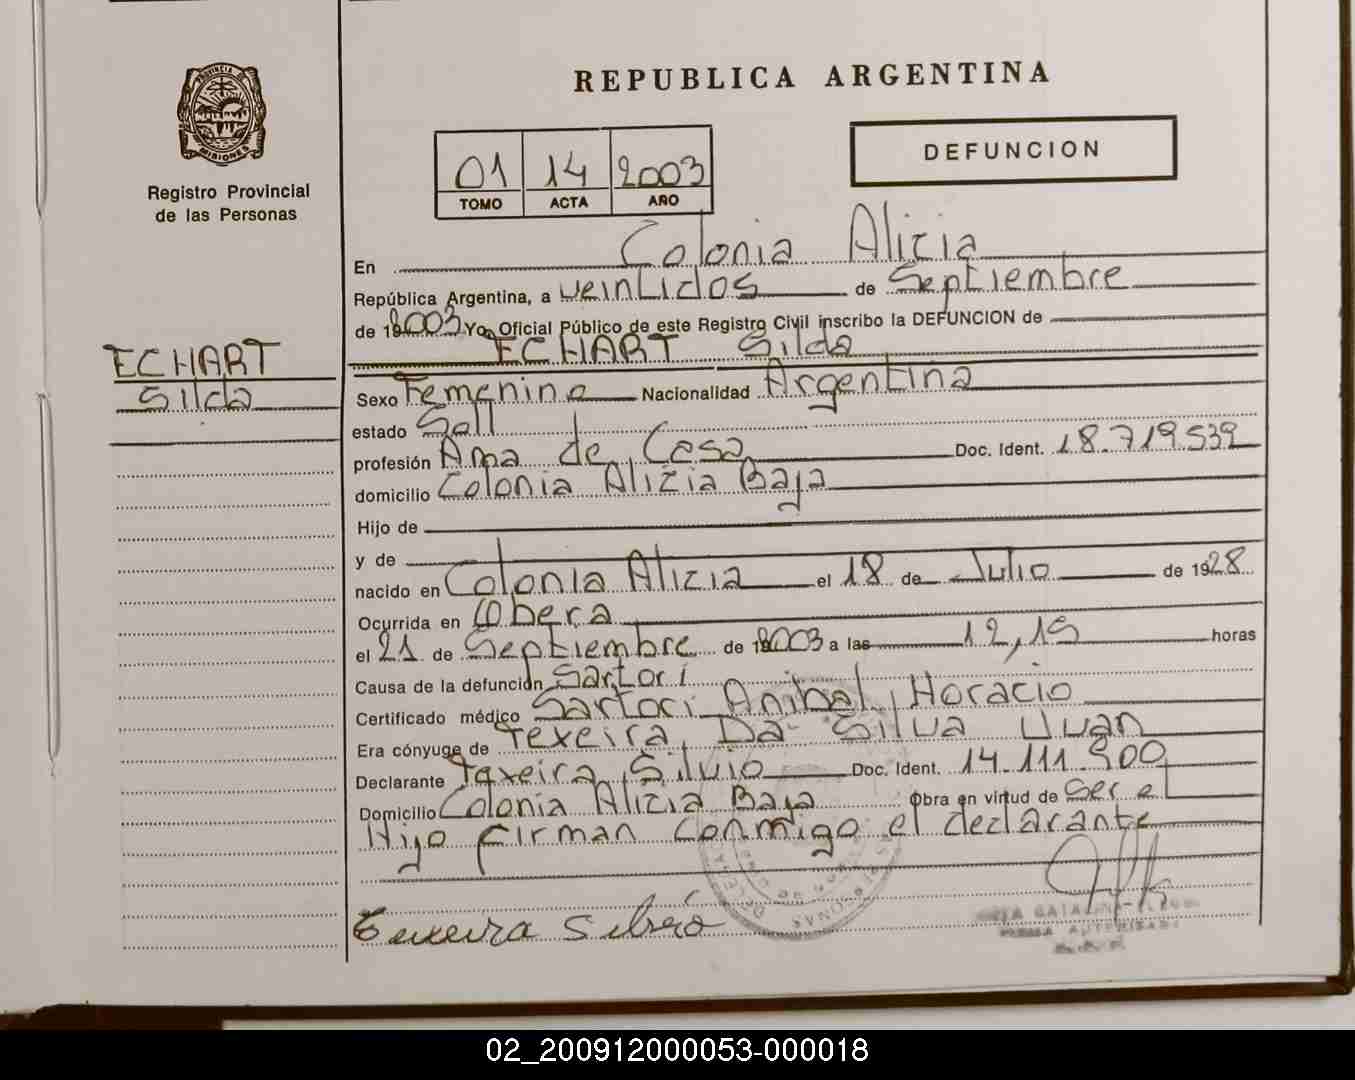 PROVINCIA DE
MISIONES
Registro Provincial
de las Personas
REPUBLICA ARGENTINA
01 14 2003
TOMO ACTA AÑO
DEFUNCION
En Colonia Alicia
República Argentina, a veintidos de Septiembre
de 2003 Yo, Oficial Público de este Registro Civil inscribo la DEFUNCION de
ECHART Silda
ECHART
Silda
Sexo Femenino Nacionalidad Argentina
estado Solt
profesión Ama de Casa Doc. Ident. 18.719.539
domicilio Colonia Alicia Baja
Hijo de
y de
nacido en Colonia Alicia el 18 de Julio de 1928
Ocurrida en Obera
el 21 de Septiembre de 2003 a las 12,15 horas
Causa de la defunción Sartori
Certificado médico Sartori Anibal Horacio
Era cónyuge de Texeira Da Silva Juan
Declarante Texeira Silvio Doc. Ident. 14.111.900
Domicilio Colonia Alicia Baja Obra en virtud de Ser el
Hijo firman conmigo el declarante
Texeira Silvio
02_200912000053-000018